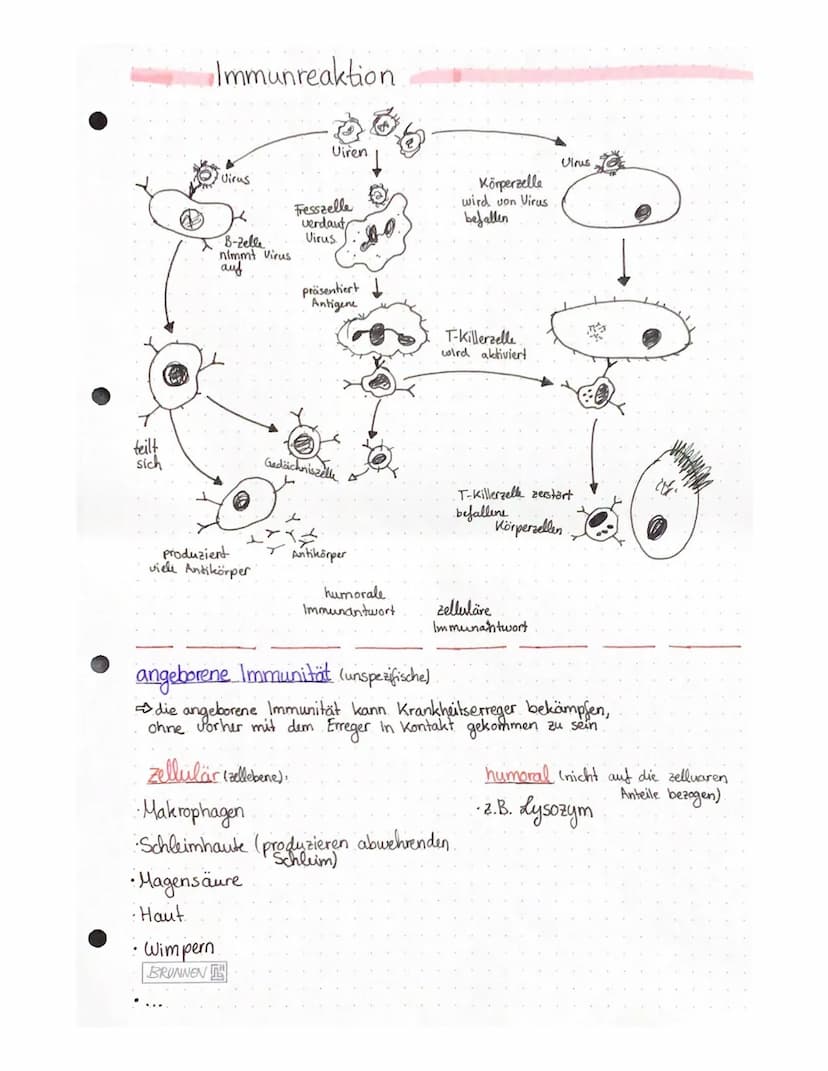 Immunreaktion
Viren
Virus
B-Zelle
nimmt Virus
auf
Fresszelle
verdaut
Virus
präsentiert
Antigene
Körperzelle
wird von Virus
befallen
Virus
T-Killerzelle
wird aktiviert
teilt
sich
Gedächniszelle
produziert
viele Antikörper
Antikörper
T-Killerzelle zerstört
befallene
Körperzellen
humorale
Immunantwort
zelluläre
Immunantwort
angeborene Immunität (unspezifische)
⇨ die angeborene Immunität kann Krankheitserreger bekämpfen,
ohne vorher mit dem Erreger in Kontakt gekommen zu sein
zellulär (zellebene):
· Makrophagen
· Schleimhäute (produzieren abwehrenden
Schleim)
· Magensäure
· Haut
· Wimpern
BRUNNEN
· ...
humoral (nicht auf die zelluären
Anteile bezogen)
· z.B. Lysozym